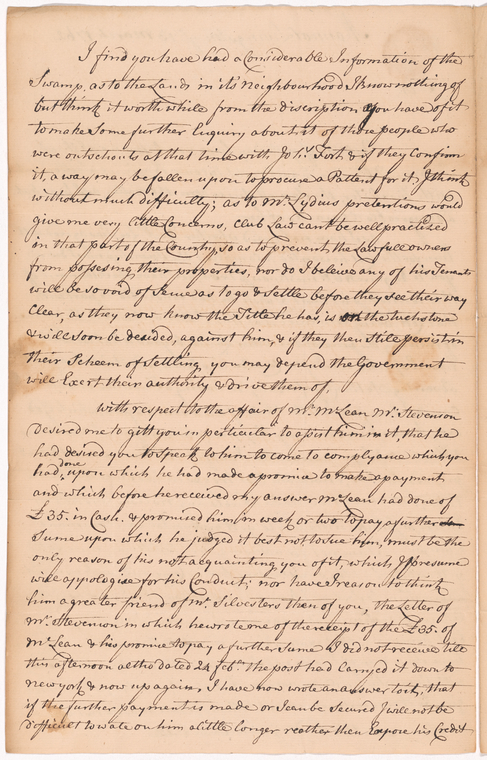 I find you have had a Considerable Information of the
Swamp, as to the Lands in it's Neighbourhood I know nothing of
but think it worth while from the discription you have of it
to make Some further Enquiry about it of those people who
were out schouts at that time with Jos. Fort, & if they Confirm
it, a way may be fallen upon to procure a Pattent for it, I think
without much difficulty; as to Mr. Lydius pretentions would
give me very little Concerns, Club Law cant be well practized
in that part of the Country, so as to prevent the Lawfull owners
from possesing their properties, nor do I beleive any of his Tenants
will be so void of Sense as to go & Settle before they See their way
Clear, as they now know the Title he has, is on the tuchstone
& will soon be desided, against him, & if they then Still persist in
their Scheem of Settling, you may depend the Government
will Exert their authority & drive them of.
With respect to the affair of Mr. McLean Mr. Stevenson
desired me to gitt you in particular to assist him in it, that he
had desired you to Speak to him to come to complyance which you
had done, upon which he had made a promise to make a payment
and which before he received my answer McLean had done of
£35. in Cash. & promised him in week or two to pay a further
Sume upon which he judged it best not to Sue him, must be the
only reason of his not acquainting you of it, which, I presume
will appologise for his Conduct; nor have I reason to think
him a greater friend of Mr. Silvesters then of you, the Letter of
Mr. Stevenson in which he wrote me of the receipt of the £35. of
McLean & his promise to pay a further Sume I did not receive till
this afternoon altho dated 24 Febr. the post had Carryed it down to
New york & now up again, I have now wrote an answer to it, that
if the further payment is made or Can be Secured I will not be
difficult to wate on him a little longer reather then Expose his Credit